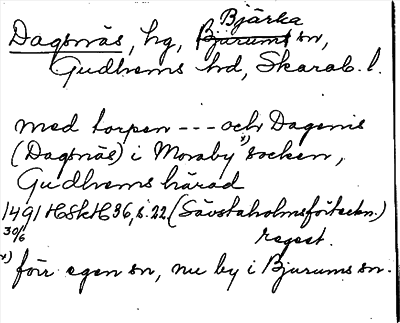 Bjärka
Dagsnäs, hg, Bjurums sn,
Gudhems hd, Skarab. l.
med torpen --- och Dagenis
(Dagsnäs) i Moraby x) socken,
Gudhems härad
1491 HSkH 36, s. 22 (Sävstaholmsförteckn.)
30/6 regest.
x) förr egen sn, nu by i Bjurums sn.